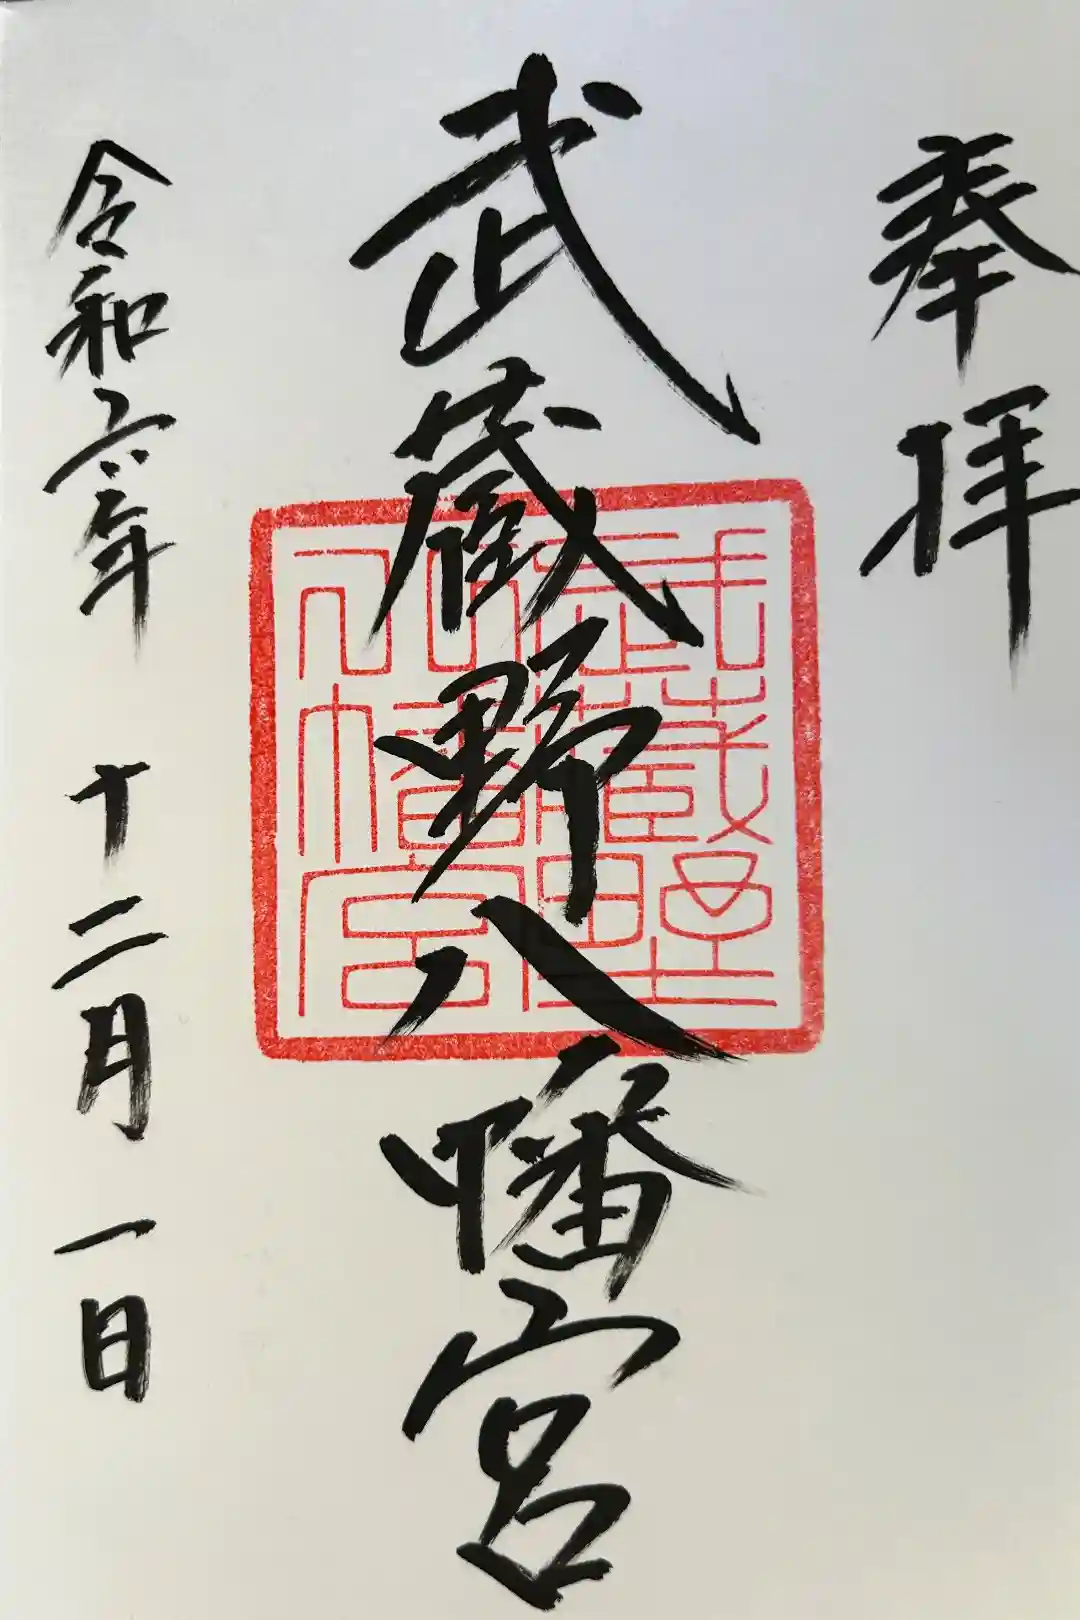 奉拝
武蔵野八幡宮
武蔵野
八幡宮
令和六年 十二月 一日